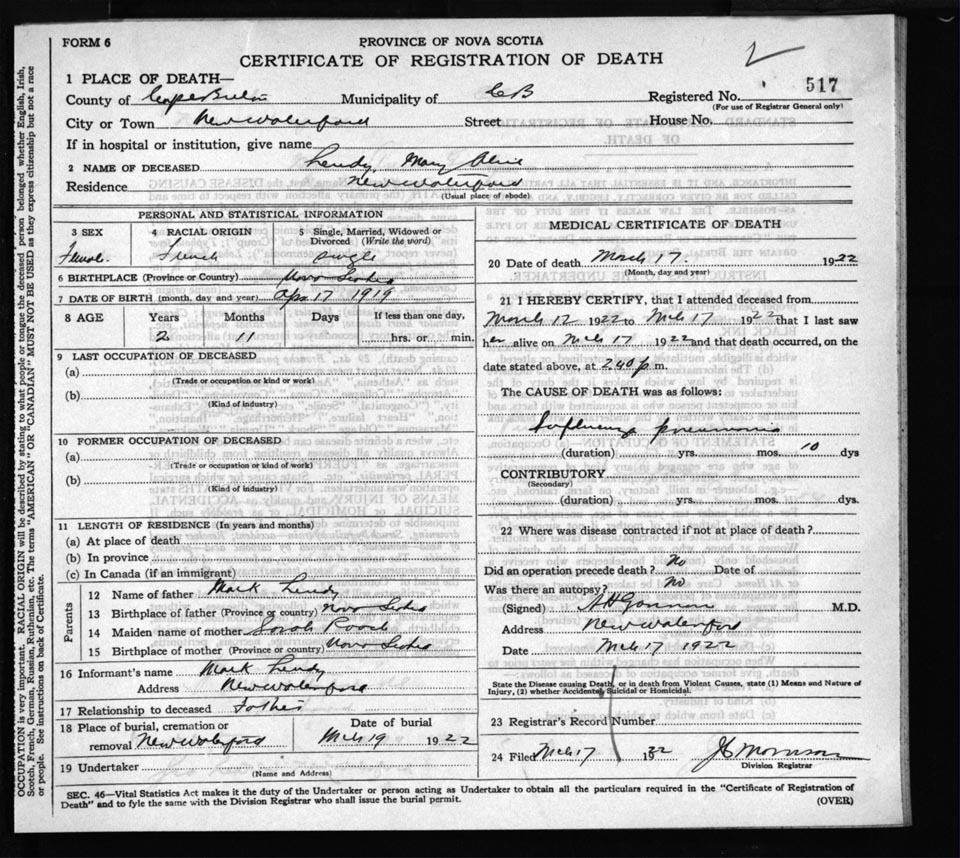 FORM 6
PROVINCE OF NOVA SCOTIA
CERTIFICATE OF REGISTRATION OF DEATH
1 PLACE OF DEATH—
517
County of Cape Breton Municipality of C B Registered No.
(For use of Registrar General only)
City or Town New Waterford Street House No.
If in hospital or institution, give name
2 NAME OF DECEASED Lendy, Mary Olive
Residence New Waterford
(Usual place of abode)
PERSONAL AND STATISTICAL INFORMATION
3 SEX 4 RACIAL ORIGIN 5 Single, Married, Widowed or Divorced (Write the word)
Female French Single
6 BIRTHPLACE (Province or Country) Nova Scotia
7 DATE OF BIRTH (month, day and year) Apr 17 1919
8 AGE Years Months Days If less than one day,
2 11 hrs. or min.
9 LAST OCCUPATION OF DECEASED
(a)
(Trade or occupation or kind or work)
(b)
(Kind of industry)
10 FORMER OCCUPATION OF DECEASED
(a)
(Trade or occupation or kind of work)
(b)
(Kind of industry)
11 LENGTH OF RESIDENCE (In years and months)
(a) At place of death
(b) In province
(c) In Canada (if an immigrant)
Parents
12 Name of father Mark Lendy
13 Birthplace of father (Province or country) Nova Scotia
14 Maiden name of mother Sarah Roach
15 Birthplace of mother (Province or country) Nova Scotia
16 Informant's name Mark Lendy
Address New Waterford
17 Relationship to deceased Father
18 Place of burial, cremation or Date of burial
removal New Waterford Mch 19 1922
19 Undertaker
(Name and Address)
MEDICAL CERTIFICATE OF DEATH
20 Date of death March 17. 1922
(Month, day and year)
21 I HEREBY CERTIFY, that I attended deceased from
March 12 1922 to Mch 17 1922 that I last saw
her alive on Mch 17 1922 and that death occurred, on the
date stated above, at 240 p m.
The CAUSE OF DEATH was as follows:
Influenza pneumonia
(duration) yrs. mos. 10 dys
CONTRIBUTORY
(Secondary)
(duration) yrs. mos. dys.
22 Where was disease contracted if not at place of death?
Did an operation precede death? No Date of
Was there an autopsy? No
(Signed) M.D.
Address New Waterford
Date Mch 17 1922
State the Disease causing Death, or in death from Violent Causes, state (1) Means and Nature of
Injury, (2) whether Accidental, Suicidal or Homicidal.
23 Registrar's Record Number
24 Filed Mch 17 1922 J C Morrison
Division Registrar
SEC. 46—Vital Statistics Act makes it the duty of the Undertaker or person acting as Undertaker to obtain all the particulars required in the "Certificate of Registration of
Death" and to fyle the same with the Division Registrar who shall issue the burial permit.
(OVER)
OCCUPATION is very important. RACIAL ORIGIN will be described by stating to what people or tongue the deceased person belonged whether English, Irish,
Scotch, French, German, Russian, Ruthenian, etc. The terms "AMERICAN" OR "CANADIAN" MUST NOT BE USED as they express citizenship but not a race
or people. See instructions on back of Certificate.